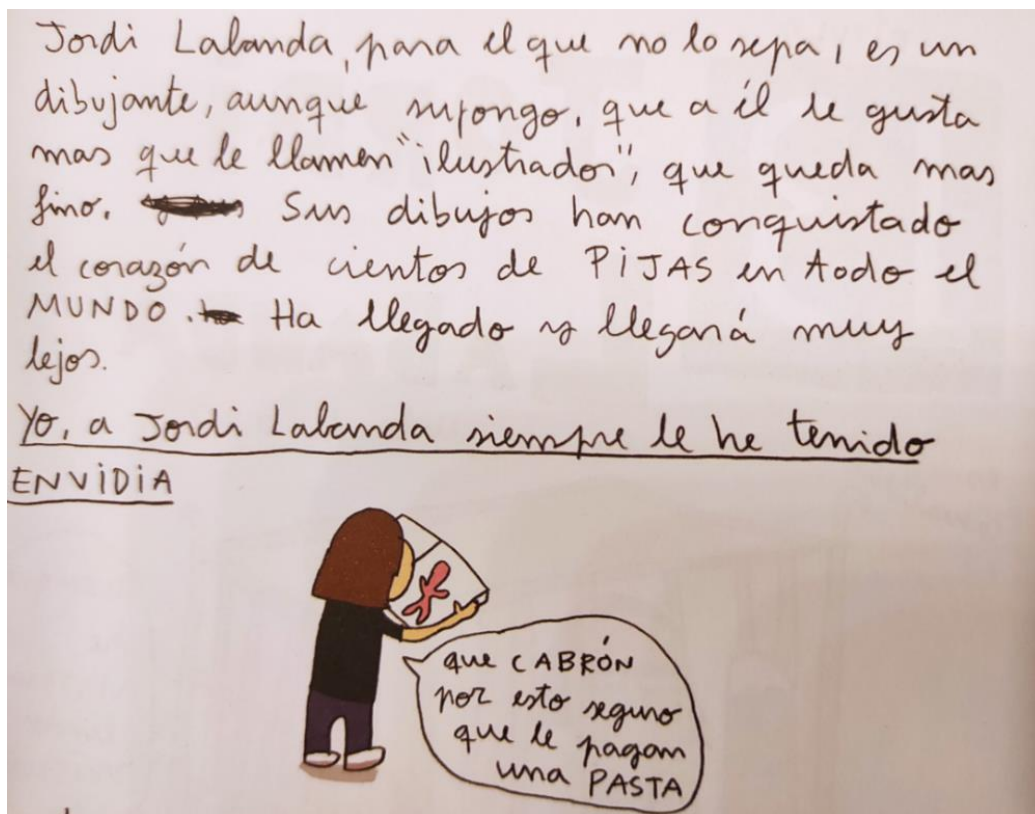 Jordi Labanda, para el que no lo sepa, es un
dibujante, aunque supongo, que a él le gusta
mas que le llamen "ilustrador", que queda mas
fino. Sus dibujos han conquistado
el corazón de cientos de PiJAS en todo el
MUNDO. Ha llegado y llegará muy
lejos.
Yo, a Jordi Labanda siempre le he tenido
ENViDiA
que CABRÓN
por esto seguro
que le pagan
una PASTA